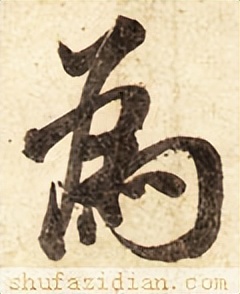 為
shufazidian.com